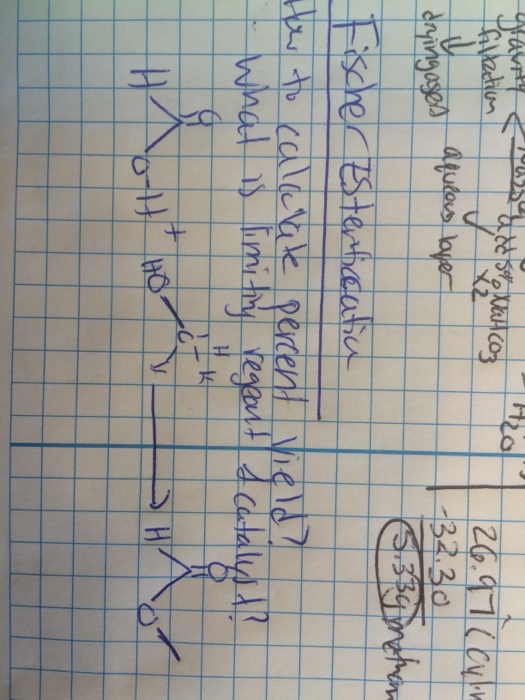 gravity
filtration
add 5% NaHCO3
x2
= H2O
26.97 (cylin
aqueous layer
-32.30
5.33g methan
Fischer Esterification
How to calculate percent Yield?
What is limiting regeant & catalyst?
H O O-H + HO C-H H H O O